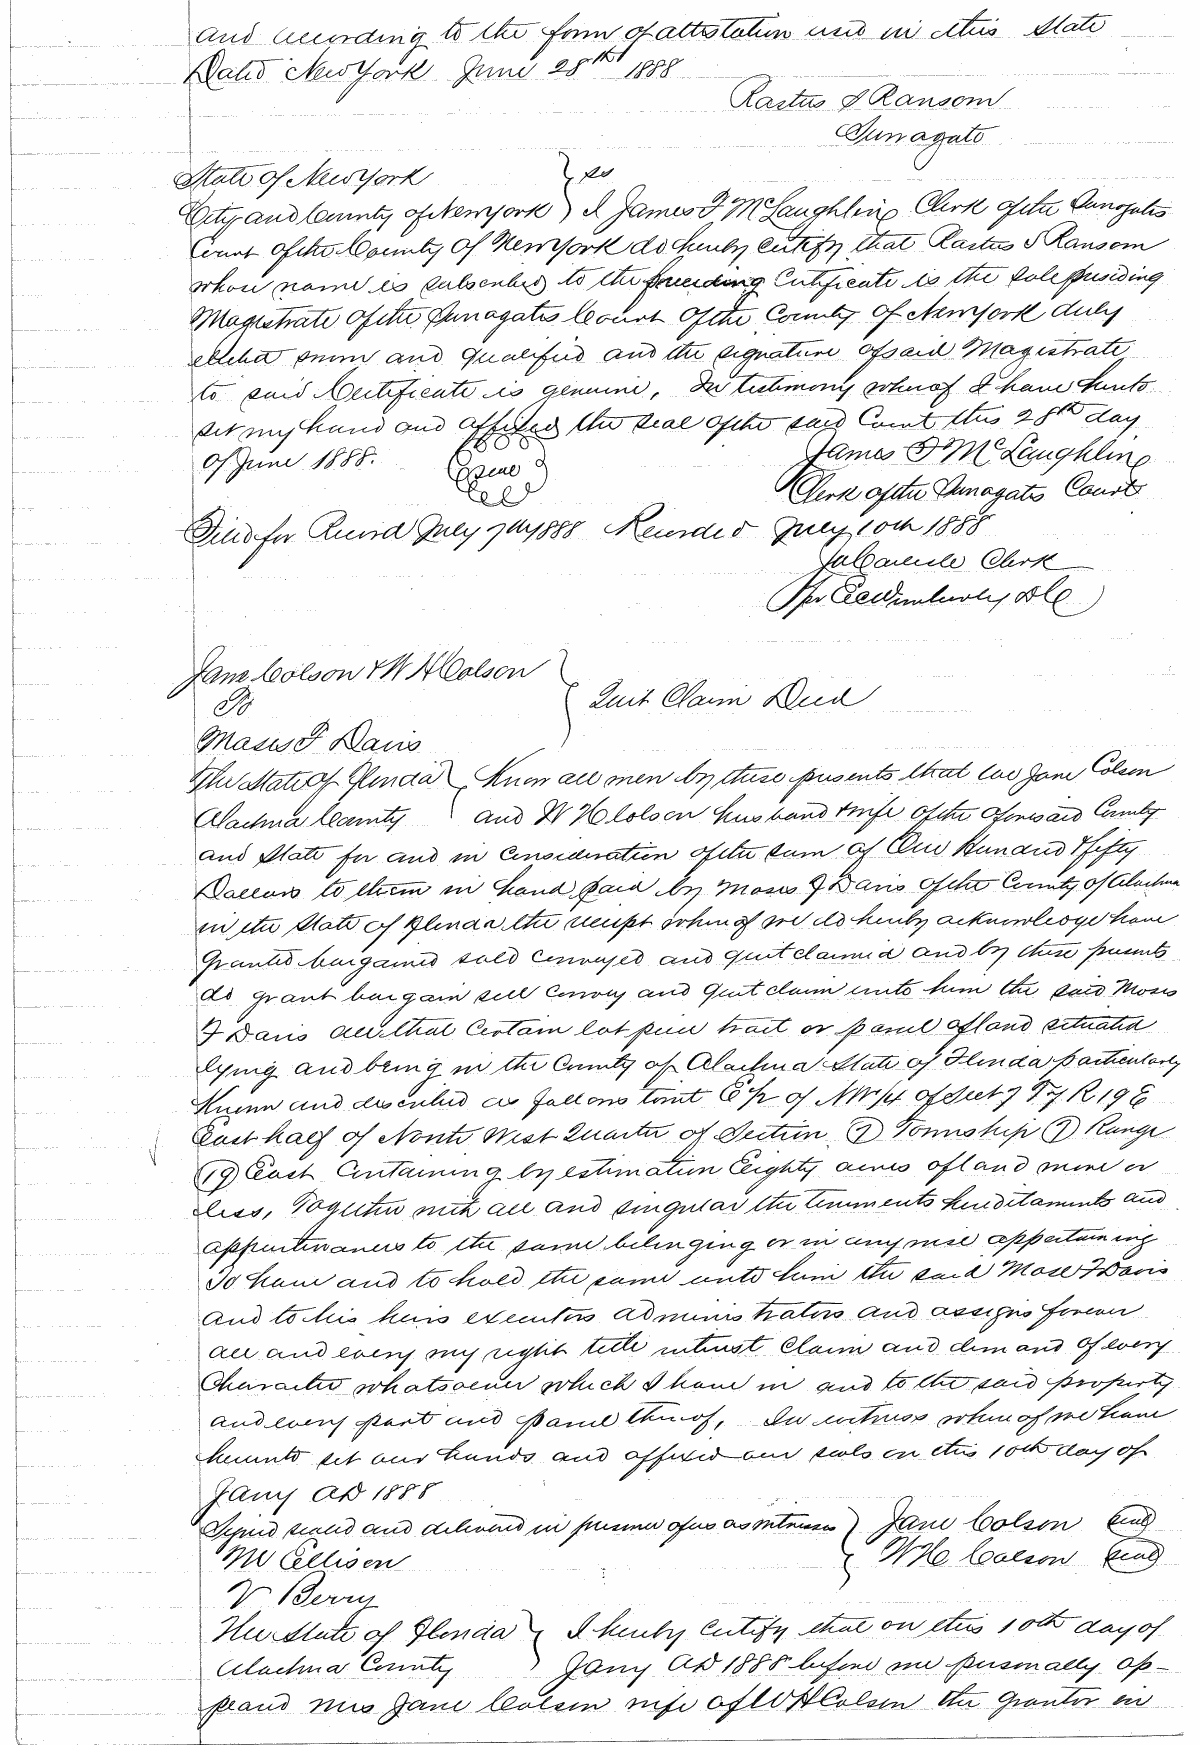 and according to the form of attestation used in this State
Dated New York June 28th 1888
Rastus S Ransom
Surrogate
State of New York } ss
City and County of New York } I James F McLaughlin Clerk of the Surrogates
Court of the County of New York do hereby certify that Rastus S Ransom
whose name is subscribed to the preceeding Certificate is the sole presiding
Magistrate of the Surrogates Court of the County of New York duly
elected sworn and qualified and the signature of said Magistrate
to said Certificate is genuine, In testimony whereof I have hereto
set my hand and affixed the seal of the said Court this 28th day
of June 1888.
James F McLaughlin
Clerk of the Surrogates Court
Filed for Record July 7th 1888 Recorded July 10th 1888
Clerk
Per DC
Jane Colson & W H Colson
To
Moses F Davis
Quit Claim Deed
The State of Florida } Know all men by these presents that we Jane Colson
Alachua County } and W H Colson husband & wife of the aforesaid County
and State for and in consideration of the sum of One Hundred & fifty
Dollars to them in hand paid by Moses F Davis of the County of Alachua
in the State of Florida the receipt whereof we do hereby acknowledge have
Granted bargained sold conveyed and quit claimed and by these presents
do grant bargain sell convey and quit claim unto him the said Moses
F Davis all that certain lot piece tract or parcel of land situated
lying and being in the County of Alachua State of Florida particularly
Known and described as follows towit E ½ of NW ¼ of Sect 7 T 7 R 19 E
East half of North West Quarter of Section (7) Township (7) Range
(19) East Containing by estimation Eighty acres of land more or
less, Together with all and singular the tenements hereditaments and
appurtenances to the same belonging or in anywise appertaining
To have and to hold the same unto him the said Mose F Davis
and to his heirs executors administrators and assigns forever
all and every my right title interest claim and demand of every
Character whatsoever which I have in and to the said property
and every part and parcel thereof, In witness whereof we have
hereunto set our hands and affixed our seals on this 10th day of
Jany AD 1888
Signed sealed and delivered in presence of us as witnesses } Jane Colson Seal
M Ellison } W H Colson Seal
V Berry
The State of Florida } I hereby certify that on this 10th day of
Alachua County } Jany AD 1888 before me personally ap-
peard Mrs Jane Colson wife of W H Colson the grantor in